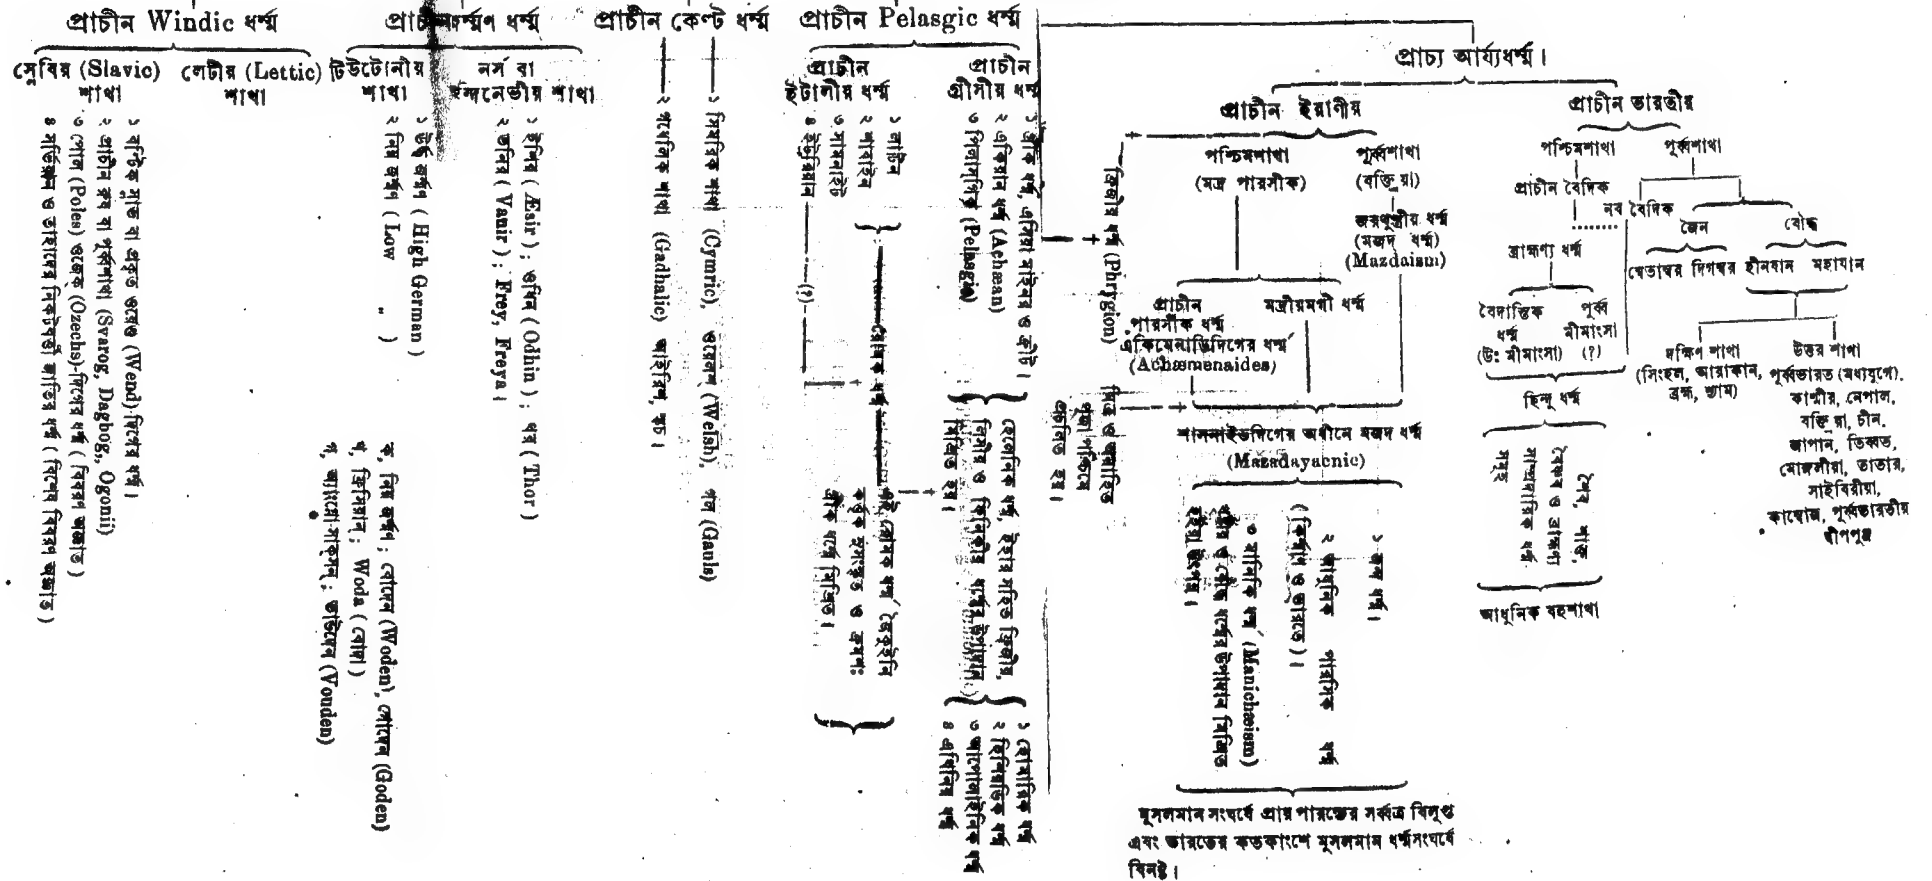 প্রাচীন Windic ধর্ম্ম
স্লেবিয় (Slavic)
শাখা
লেটীয় (Lettic)
শাখা
১ বণ্টিক স্লাভ বা প্রকৃত ওয়েণ্ড (Wend) দিগের ধর্ম্ম।
২ প্রাচীন রুষ বা পূর্ব্বশাখা (Svarog, Dagbog, Ogonii)
৩ পোল (Poles) ওজেক (Ozechs)-দিগের ধর্ম্ম (বিবরণ অজ্ঞাত)
৪ সর্ভিয়ান ও তাহাদের নিকটবর্ত্তী জাতির ধর্ম্ম (বিশেষ বিবরণ অজ্ঞাত)
টিউটোনীয়
শাখা
নর্স বা
স্কন্দনেভীয় শাখা
১ উর্দ্ধ জর্ম্মণ (High German)
২ নিম্ন জর্ম্মণ (Low „ )
ক, নিম্ন জর্ম্মণ; বোদেন (Woden), গোদেন (Goden)
খ, ফ্রিসিয়ান; Woda (বোদা)
গ, অ্যাংগ্লো-সাক্সন; ভাউদেন (Vouden)
১ ঈসির (Æsir); ওধিন (Odhin); থর (Thor)
২ ভনির (Vanir); Frey, Freya।
প্রাচীন কেল্ট ধর্ম্ম
১ সিমরিক শাখা (Cymric), ওয়েলস (Welsh), গল (Gauls)
২ গধেলিক শাখা (Gadhalic) আইরিশ, স্কচ।
প্রাচীন Pelasgic ধর্ম্ম
প্রাচীন
ইটালীয় ধর্ম্ম
১ লাটিন
২ সাবাইন
৩ সামনাইট
৪ ইট্রুরিয়ান
(?)
রোমক ধর্ম্ম
এই রোমক ধর্ম্ম
কর্ত্তৃক সুসংস্কৃত ও ক্রমশঃ
গ্রীক ধর্ম্মে মিশ্রিত।
প্রাচীন
গ্রীসীয় ধর্ম্ম
১ গ্রীক ধর্ম্ম, এসিয়া মাইনর ও ক্রীট।
২ একিয়ান ধর্ম্ম (Achæan)
৩ পিলাসগিক (Pelasgic)
হেলেনিক ধর্ম্ম, ইহার সহিত ফ্রিজীয়,
লিসীয় ও ফিনিকীয় ধর্ম্মের উপাদান
মিশ্রিত হয়।
১ হোমারিক ধর্ম্ম
২ হিসিয়ডিক ধর্ম্ম
৩ আপোলোনিক ধর্ম্ম
৪ এথিনিয় ধর্ম্ম
প্রাচ্য আর্য্যধর্ম্ম।
ফ্রিজীয় ধর্ম্ম (Phrygion)
প্রাচীন ইরাণীয়
পশ্চিমশাখা
(মদ্র পারসীক)
পূর্ব্বশাখা
(বক্তিয়া)
জরথুস্ত্রীয় ধর্ম্ম
(মজদ ধর্ম্ম)
(Mazdaism)
প্রাচীন
পারসীক ধর্ম্ম
একিমেনাডিদিগের ধর্ম্ম
(Achæmenaides)
মদ্রীয়মগী ধর্ম্ম
প্রচলিত হয়।
শাসনাইডদিগের অধীনে মজদ ধর্ম্ম
(Mazadayacnic)
১ জন্দ ধর্ম্ম।
২ আধুনিক পারসিক ধর্ম্ম
(কির্ম্মাণ ও ভারতে)।
৩ মানিকি ধর্ম্ম (Manichæism)
খৃষ্টীয় ও বৌদ্ধ ধর্ম্মের উপাদান মিশ্রিত
হইয়া উৎপন্ন।
মুসলমান সংঘর্ষে প্রায় পারস্যের সর্ব্বত্র বিলুপ্ত
এবং ভারতের কতকাংশে মুসলমান ধর্ম্মসংঘর্ষে
বিনষ্ট।
প্রাচীন ভারতীয়
পশ্চিমশাখা
পূর্ব্বশাখা
প্রাচীন বৈদিক
নব বৈদিক
ব্রাহ্মণ্য ধর্ম্ম
বৈদান্তিক
ধর্ম্ম
(উঃ মীমাংসা)
পূর্ব্ব
মীমাংসা
(?)
হিন্দু ধর্ম্ম
শৈব, শাক্ত,
বৈষ্ণব ও ব্রাহ্মণ্য
সাম্প্রদায়িক ধর্ম্ম
সমূহ
আধুনিক বহুশাখা
জৈন
শ্বেতাম্বর দিগম্বর
বৌদ্ধ
হীনযান মহাযান
দক্ষিণ শাখা
(সিংহল, আরাকান,
ব্রহ্ম, শ্যাম)
উত্তর শাখা
পূর্ব্বভারত (মধ্যযুগে).
কাশ্মীর, নেপাল,
বক্তিয়া, চীন,
জাপান, তিব্বত,
মোঙ্গলীয়া, তাতার,
সাইবিরীয়া,
কাম্বোজ, পূর্ব্বভারতীয়
দ্বীপপুঞ্জ